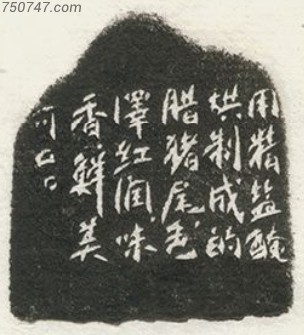 750747.com
用精盐醃
烘制成的
腊猪尾色
泽红润味
香鲜美
可口